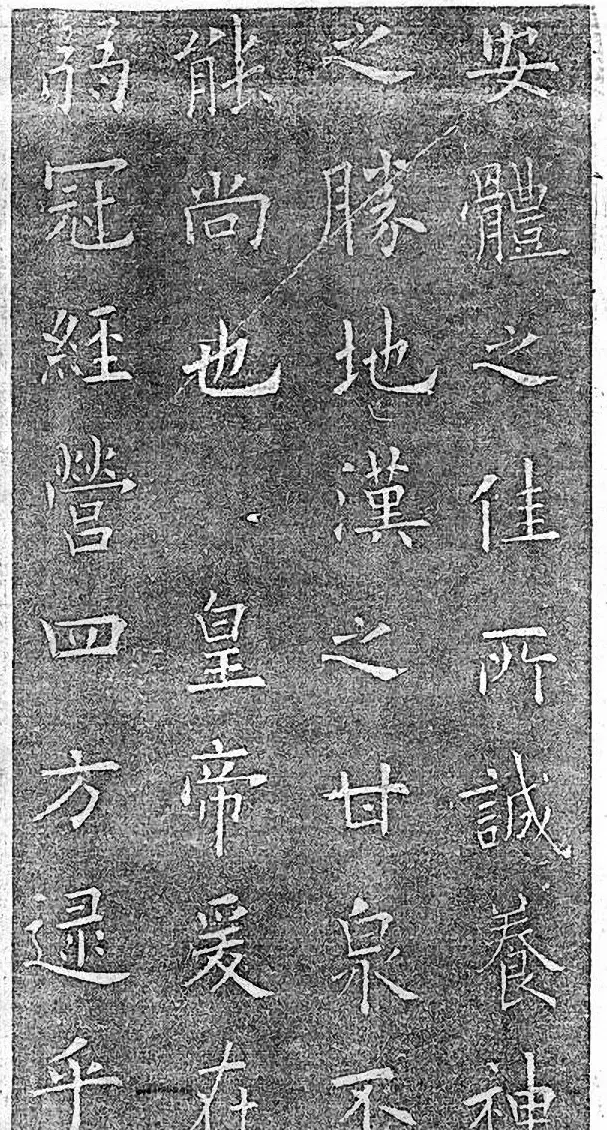 安體之佳所誠養神
之勝地漢之甘泉不
能尚也皇帝爰在
弱冠經營四方逯乎